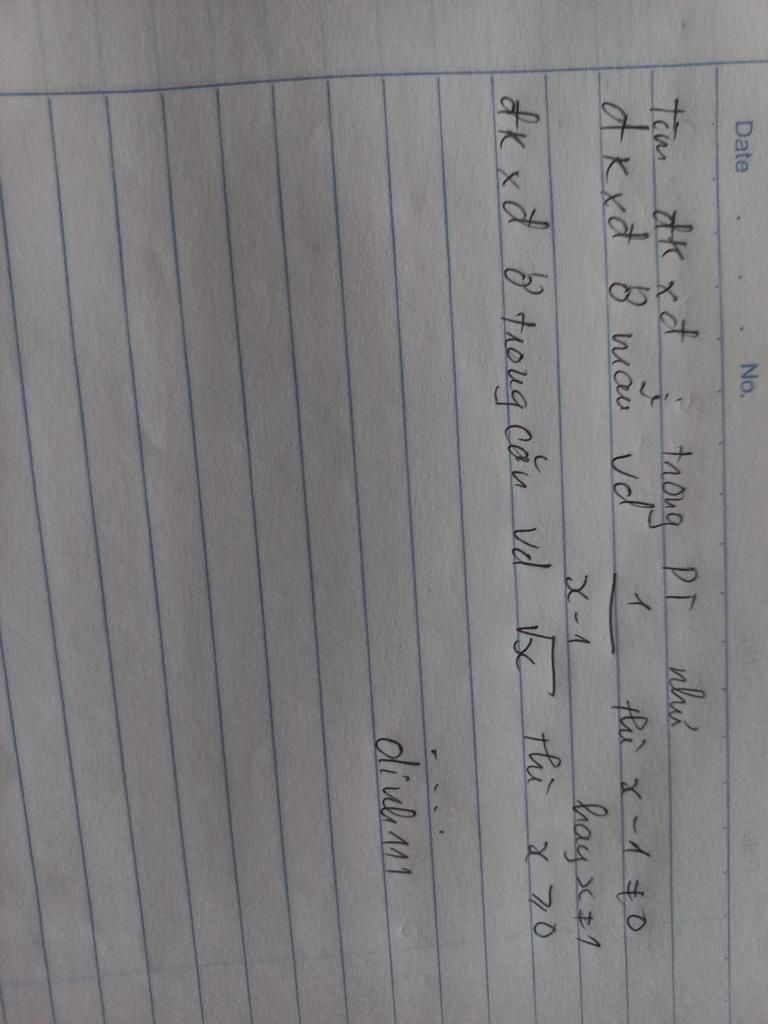 Date . . . No.
tìm đkxđ : trong PT như
đkxđ ở mẫu vd 1/(x-1) thì x-1≠0
hay x≠1
đkxđ ở trong căn vd √x thì x≥0
....
dinh111